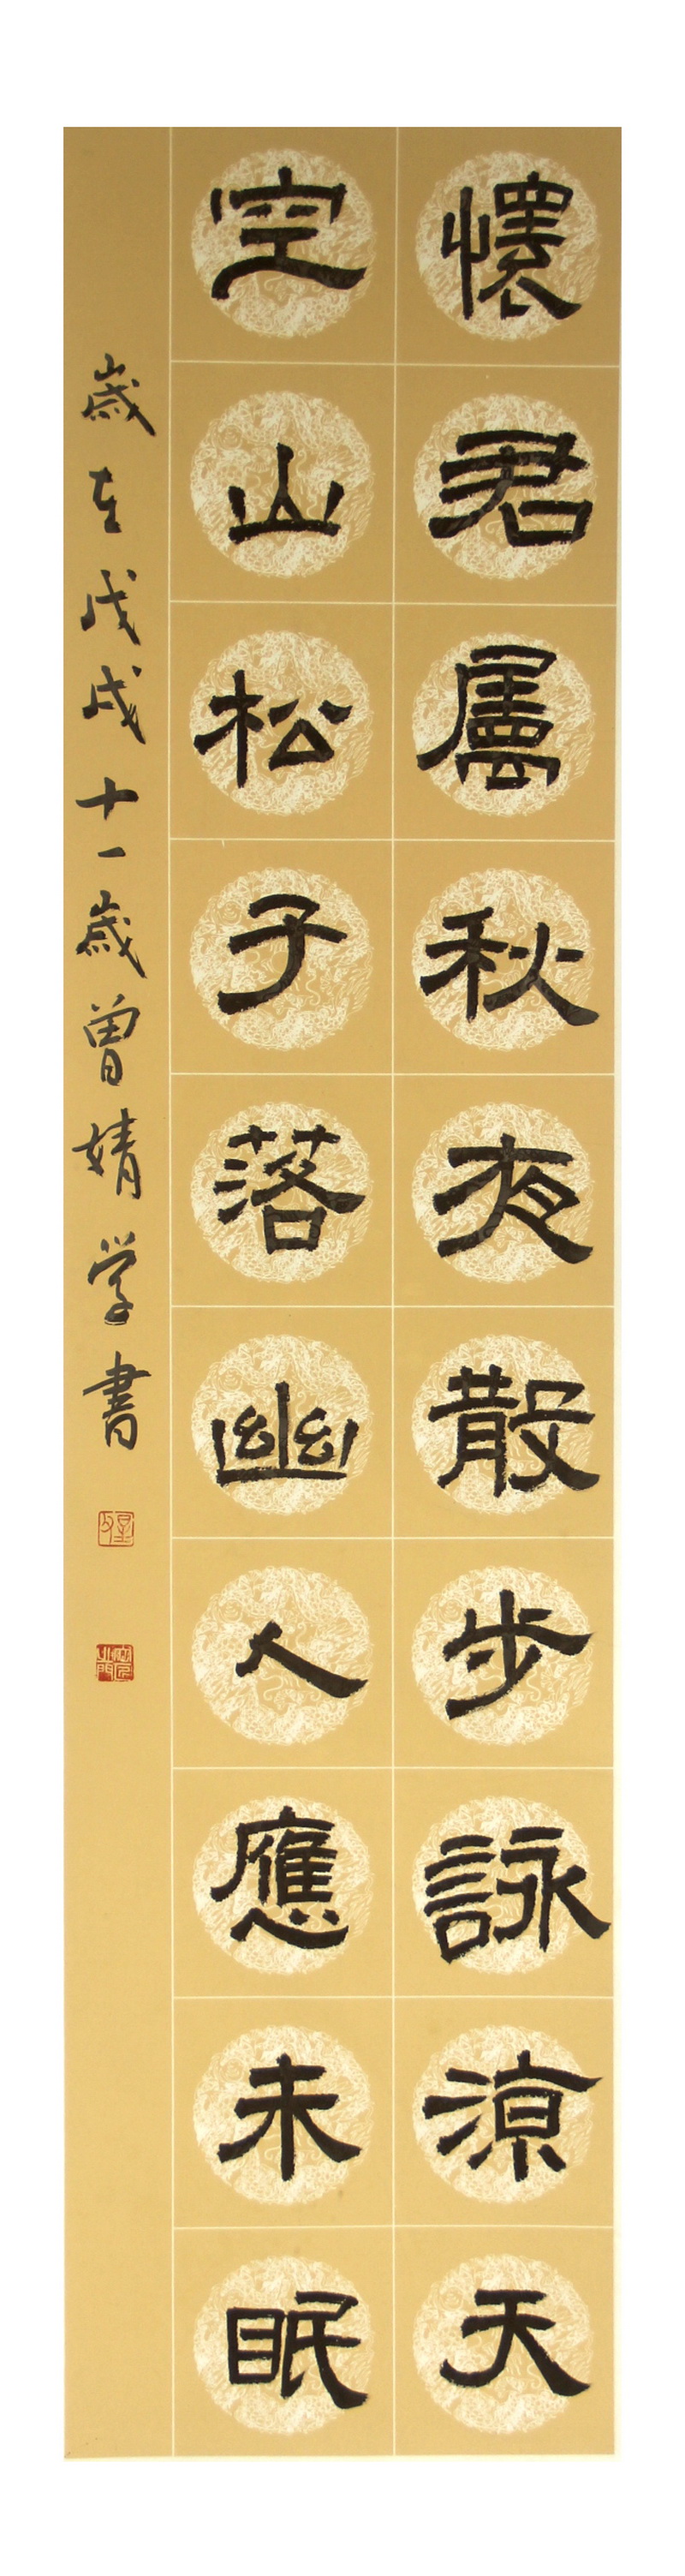 懷君屬秋夜散步詠涼天
空山松子落幽人應未眠
歲在戊戌十一歲曾婧学書